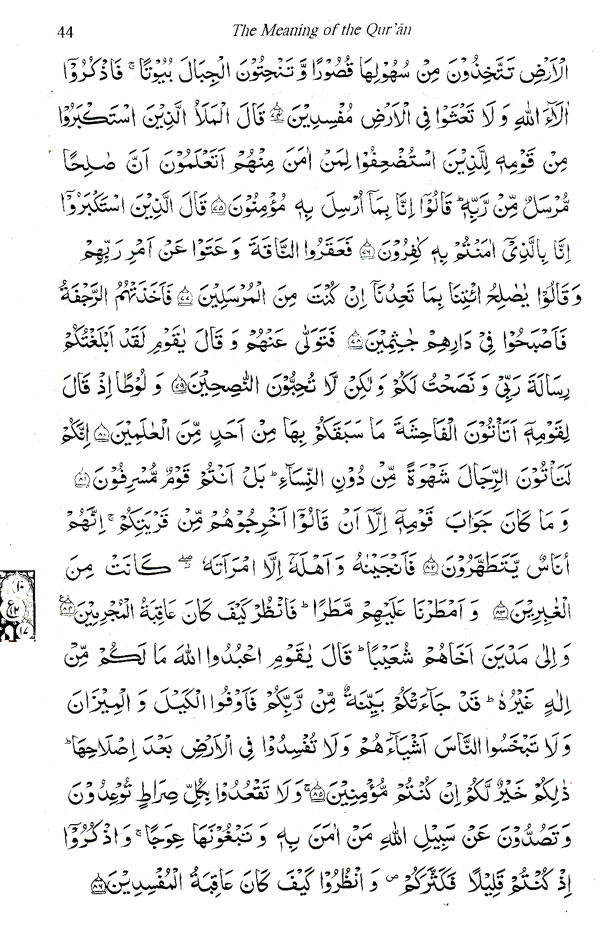 44 The Meaning of the Qur'ān
الْاَرْضِ تَتَّخِذُوْنَ مِنْ سُهُوْلِهَا قُصُوْرًا وَّ تَنْحِتُوْنَ الْجِبَالَ بُيُوْتًا ۚ فَاذْكُرُوْۤا
اٰلَآءَ اللّٰهِ وَ لَا تَعْثَوْا فِی الْاَرْضِ مُفْسِدِیْنَ ﴿۷۴﴾ قَالَ الْمَلَاُ الَّذِیْنَ اسْتَكْبَرُوْا
مِنْ قَوْمِهٖ لِلَّذِیْنَ اسْتُضْعِفُوْا لِمَنْ اٰمَنَ مِنْهُمْ اَتَعْلَمُوْنَ اَنَّ صٰلِحًا
مُّرْسَلٌ مِّنْ رَّبِّهٖ ؕ قَالُوْۤا اِنَّا بِمَاۤ اُرْسِلَ بِهٖ مُؤْمِنُوْنَ ﴿۷۵﴾ قَالَ الَّذِیْنَ اسْتَكْبَرُوْۤا
اِنَّا بِالَّذِیْۤ اٰمَنْتُمْ بِهٖ كٰفِرُوْنَ ﴿۷۶﴾ فَعَقَرُوا النَّاقَةَ وَ عَتَوْا عَنْ اَمْرِ رَبِّهِمْ
وَ قَالُوْا یٰصٰلِحُ ائْتِنَا بِمَا تَعِدُنَاۤ اِنْ كُنْتَ مِنَ الْمُرْسَلِیْنَ ﴿۷۷﴾ فَاَخَذَتْهُمُ الرَّجْفَةُ
فَاَصْبَحُوْا فِیْ دَارِهِمْ جٰثِمِیْنَ ﴿۷۸﴾ فَتَوَلّٰی عَنْهُمْ وَ قَالَ یٰقَوْمِ لَقَدْ اَبْلَغْتُكُمْ
رِسَالَةَ رَبِّیْ وَ نَصَحْتُ لَكُمْ وَ لٰكِنْ لَّا تُحِبُّوْنَ النّٰصِحِیْنَ ﴿۷۹﴾ وَ لُوْطًا اِذْ قَالَ
لِقَوْمِهٖۤ اَتَاْتُوْنَ الْفَاحِشَةَ مَا سَبَقَكُمْ بِهَا مِنْ اَحَدٍ مِّنَ الْعٰلَمِیْنَ ﴿۸۰﴾ اِنَّكُمْ
لَتَاْتُوْنَ الرِّجَالَ شَهْوَةً مِّنْ دُوْنِ النِّسَآءِ ؕ بَلْ اَنْتُمْ قَوْمٌ مُّسْرِفُوْنَ ﴿۸۱﴾
وَ مَا كَانَ جَوَابَ قَوْمِهٖۤ اِلَّاۤ اَنْ قَالُوْۤا اَخْرِجُوْهُمْ مِّنْ قَرْیَتِكُمْ ۚ اِنَّهُمْ
اُنَاسٌ یَّتَطَهَّرُوْنَ ﴿۸۲﴾ فَاَنْجَیْنٰهُ وَ اَهْلَهٗۤ اِلَّا امْرَاَتَهٗ ۖؗ كَانَتْ مِنَ
الْغٰبِرِیْنَ ﴿۸۳﴾ وَ اَمْطَرْنَا عَلَیْهِمْ مَّطَرًا ؕ فَانْظُرْ كَیْفَ كَانَ عَاقِبَةُ الْمُجْرِمِیْنَ ﴿۸۴﴾
وَ اِلٰی مَدْیَنَ اَخَاهُمْ شُعَیْبًا ؕ قَالَ یٰقَوْمِ اعْبُدُوا اللّٰهَ مَا لَكُمْ مِّنْ
اِلٰهٍ غَیْرُهٗ ؕ قَدْ جَآءَتْكُمْ بَیِّنَةٌ مِّنْ رَّبِّكُمْ فَاَوْفُوا الْكَیْلَ وَ الْمِیْزَانَ
وَ لَا تَبْخَسُوا النَّاسَ اَشْیَآءَهُمْ وَ لَا تُفْسِدُوْا فِی الْاَرْضِ بَعْدَ اِصْلَاحِهَا ؕ
ذٰلِكُمْ خَیْرٌ لَّكُمْ اِنْ كُنْتُمْ مُّؤْمِنِیْنَ ﴿۸۵﴾ ۚ وَ لَا تَقْعُدُوْا بِكُلِّ صِرَاطٍ تُوْعِدُوْنَ
وَ تَصُدُّوْنَ عَنْ سَبِیْلِ اللّٰهِ مَنْ اٰمَنَ بِهٖ وَ تَبْغُوْنَهَا عِوَجًا ۚ وَ اذْكُرُوْۤا
اِذْ كُنْتُمْ قَلِیْلًا فَكَثَّرَكُمْ ۪ وَ انْظُرُوْا كَیْفَ كَانَ عَاقِبَةُ الْمُفْسِدِیْنَ ﴿۸۶﴾
۱۰
ع
۱۲
۱۷